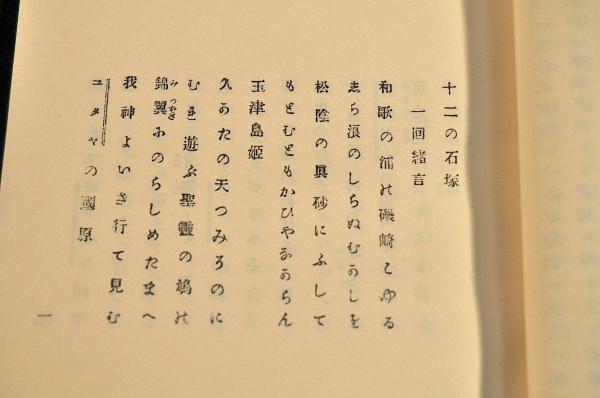 十二の石塚
一回緒言
和歌の浦の磯崎こゆる
志ら浪のしらぬむかしを
松陰の眞砂にふして
もとむともかひやなからん
玉津島姫
久かたの天つみそのに
むれ遊ぶ聖靈の鳩の
錦翼にのらしめたまへ
みつばさ
我神よいざ行て見む
ユダヤの國原
一